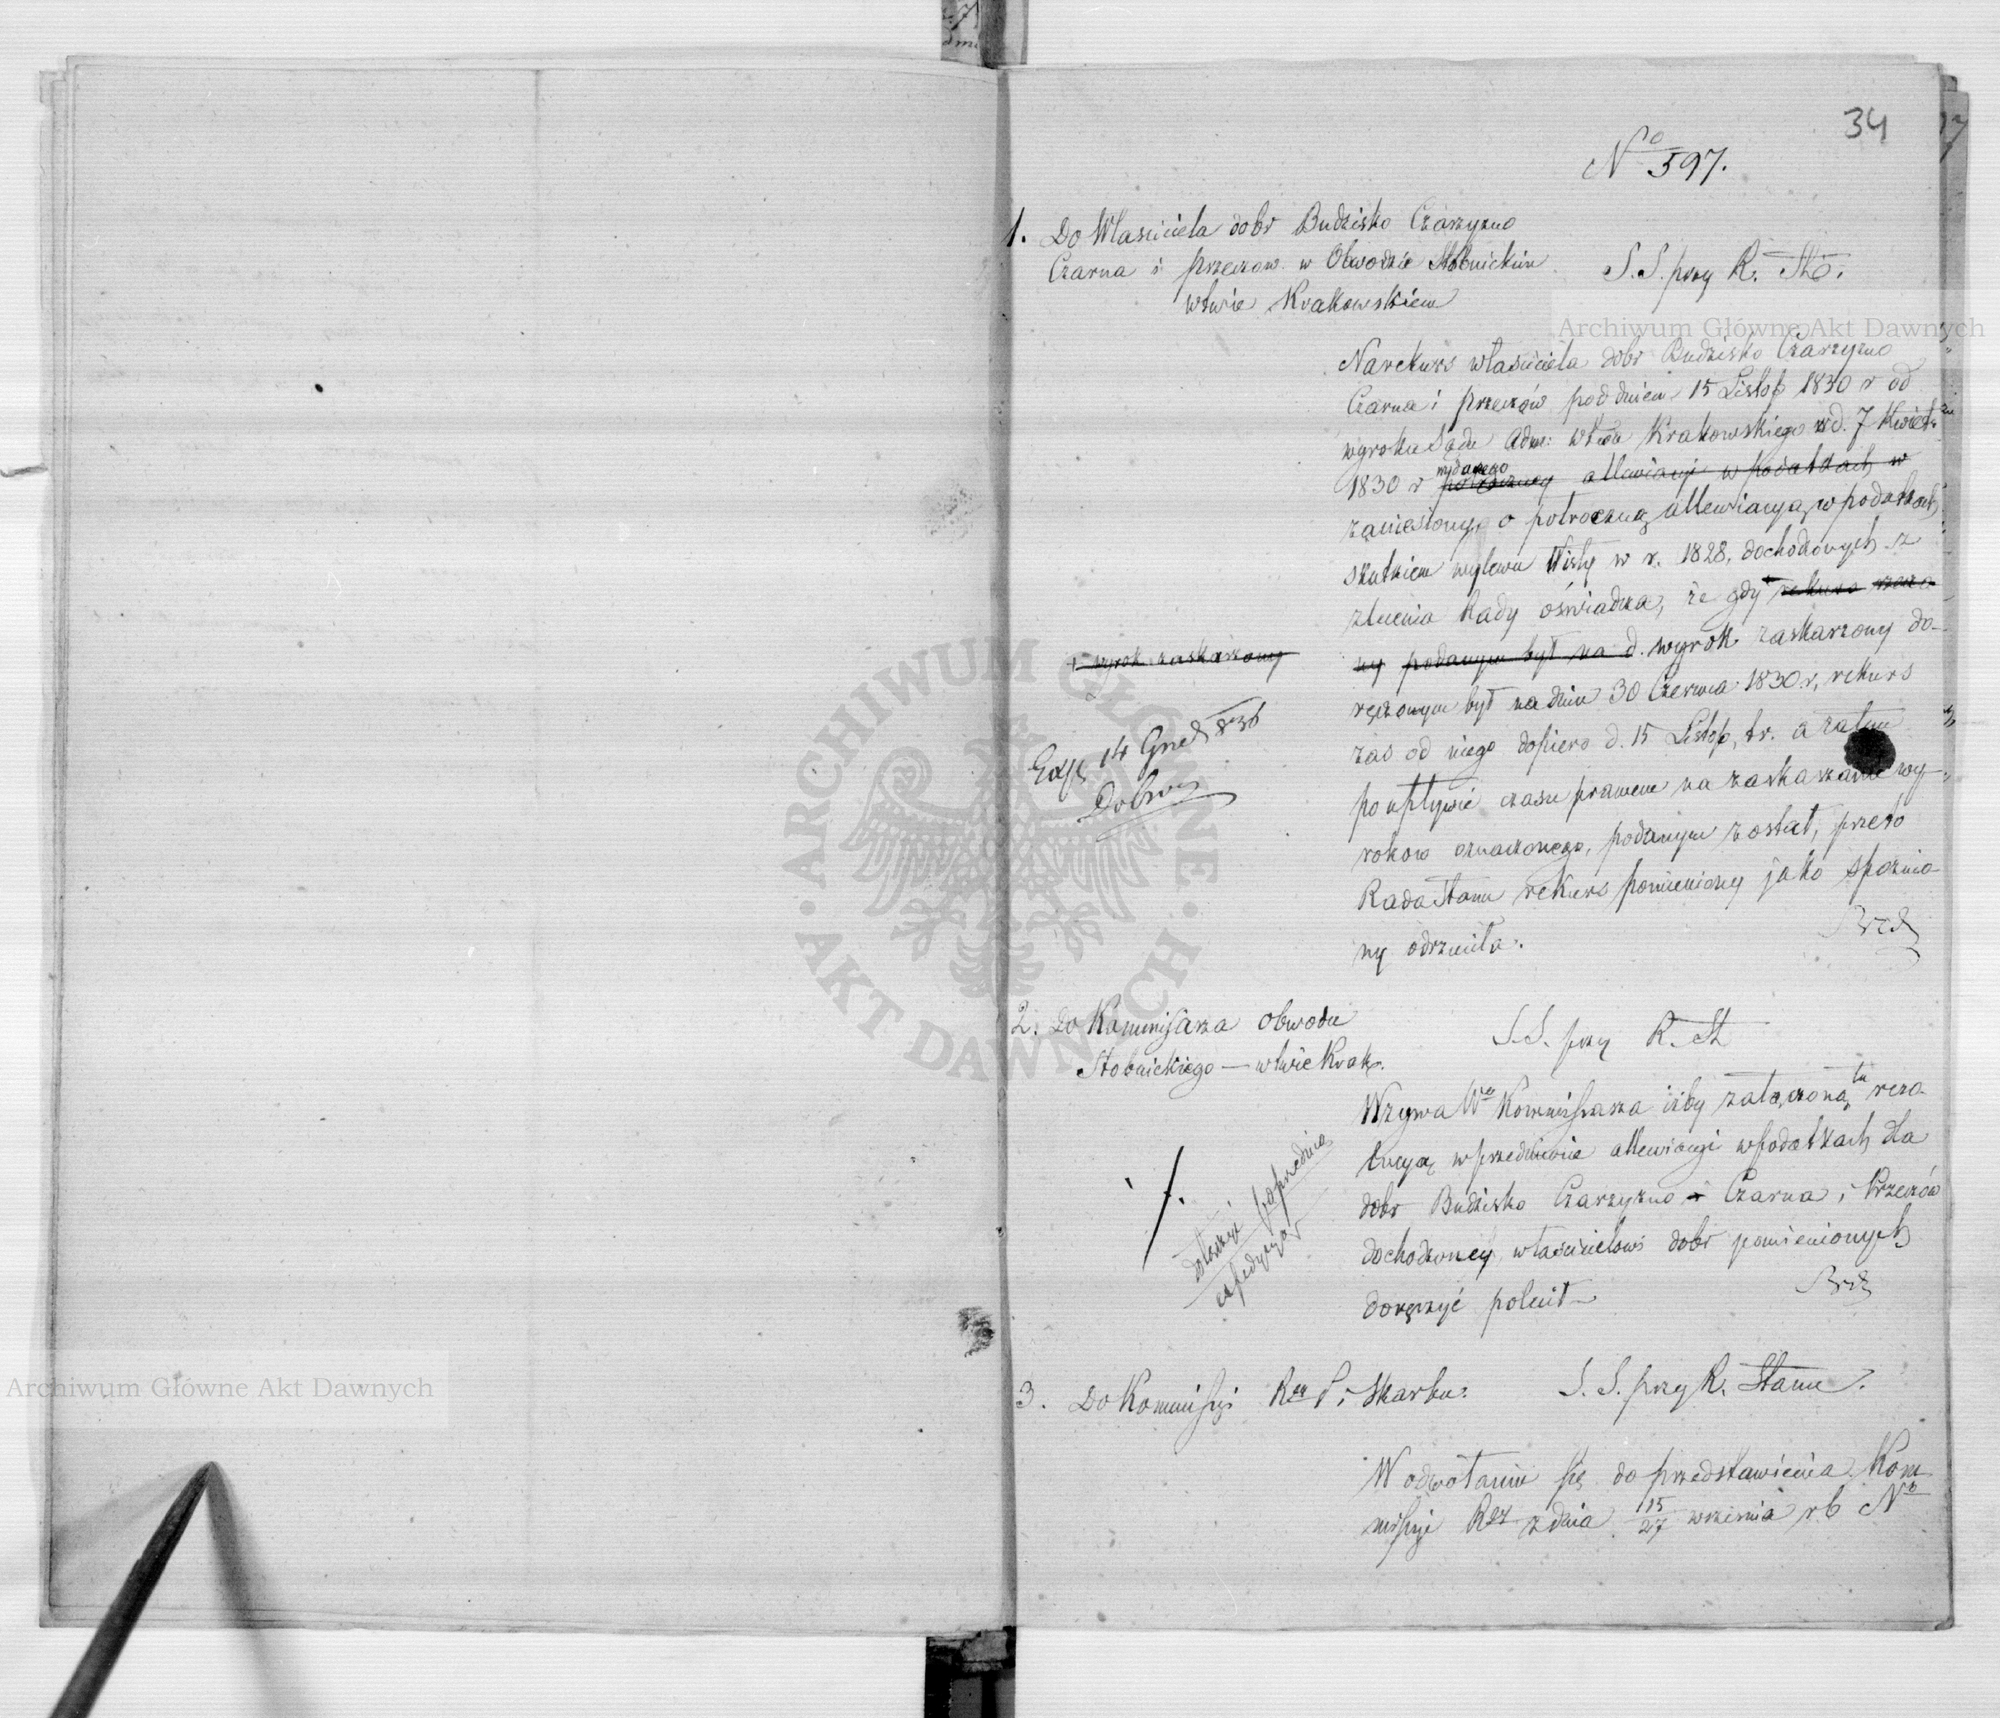 34
No 597.
1. Do Właściciela dobr Budzisko Czarzyzno
Czarna i Przeczow w Obwodzie Stobnickim
wtwie Krakowskiem
S. S. przy R. Stu.
Na rekurs właściciela dobr Budzisko Czarzyzno
Czarna i Przeczów pod dniem 15 Listop 1830 r od
wyroku Sądu Adm: wtwa Krakowskiego z d. 7 Kwiet.
1830 r wydanego allewiacyi w podatkach w
zaniesiony, o potroczną allewiacyą w podatkach
skutkiem wylewu Wisły w r. 1828, dochodzonych z
zlecenia Rady oświadcza, że gdy rekurs
ny podanym był na d. wyrok zaskarzony do-
+ wyrok zaskarzony
ręczonym był na dniu 30 Czerwca 1830 r, rekurs
zas od niego dopiero d. 15 Listop. tr. a zatem
po upływie czasu prawem na zaskarzanie wy-
rokow oznaczonego, podanym został, przeto
Rada Stanu rekurs pomieniony jako spoznio-
ny odrzuciła.
Exp. 14 Grud 836
2. Do Kommissarza obwodu
Stobnickiego — wtwie Krak.
S. S. przy R. St
Wzywa Wo Kommissarza iżby załączoną tu rezo-
lucyą w przedmiocie allewiacyi w podatkach dla
dobr Budzisko Czarzyzno Czarna i Przeczów
dochodzoney, właścicielowi dobr pomienionych
doręczyć polecił —
dołączyć poprzednią
expedycyą
3. Do Kommissyi Rzz P. i Skarbu.
S. S. przy R. Stanu.
W odwołaniu się do przedstawienia Kom-
missyi Rzz z dnia 15/27 września r b No
Archiwum Główne Akt Dawnych
Archiwum Główne Akt Dawnych
ARCHIWUM GŁÓWNE · AKT DAWNYCH ·